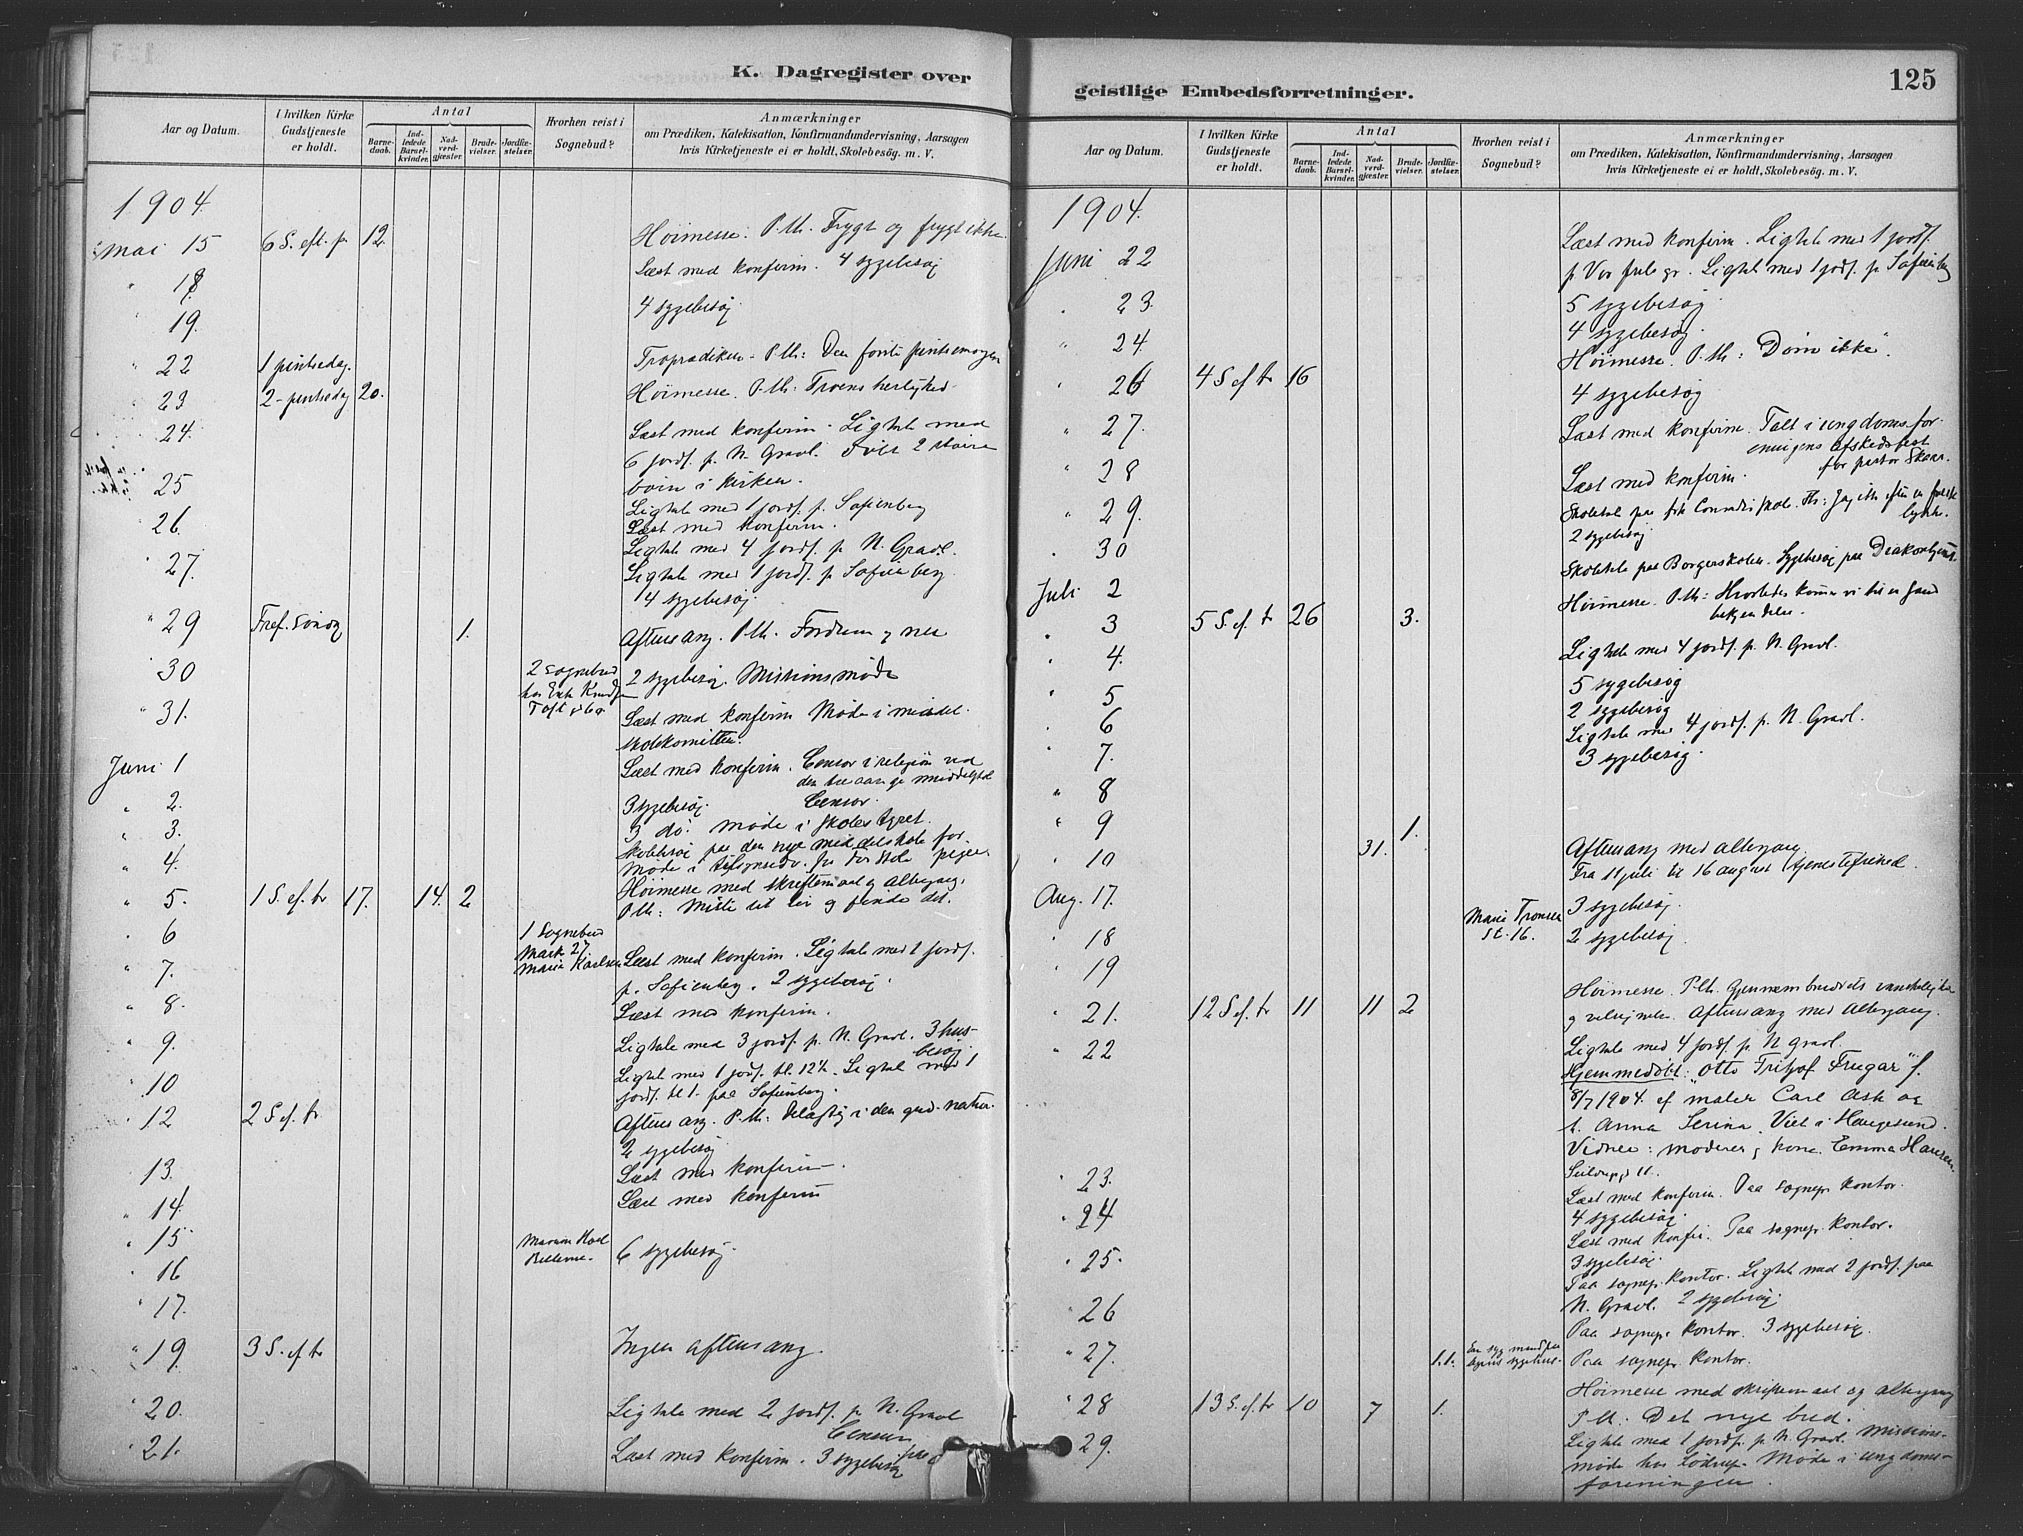 K. Dagregister over
Aar og Datum.
I hvilken Kirke Gudstjeneste er holdt.
Antal
Barnedaab.
Indledede Barselkvinder.
Nadverdgjester.
Brudevielser.
Jordfæstelser.
Hvorhen reist i Sognebud?
Anmærkninger
om Prædiken, Katekisation, Konfirmandundervisning, Aarsagen
hvis Kirketjeneste ei er holdt, Skolebesøg. m. V.
1904.
Mai 15 6 S. eft. p. 12 Høimesse. P. th. Frygt og frygt ikke.
" 18 Læst med konfirm. 4 sygebesøg
" 19. 4 sygebesøg.
" 22 1 pintsedag. P. th: Den første pintsemorgen
" 23 2 - pintsedag 20. Høimesse. P. th: Troens herlighed.
" 24. Læst med konfirm. Ligtale med
6 jordf. p. N. Gravl. Døbt 2
børn i kirken.
" 25 Ligtale med 1 jordf. p. Sofienberg
" 26. Læst med konfirm.
Ligtale med 4 jordf. p. N. Gravl.
" 27. Ligtale med 1 jordf. p Sofienberg.
4 sygebesøg.
" 29 Tref. Søndg 1. Aftensang. P. th. Fordum og nu
" 30 2 sognebud 2 sygebesøg. Missionsmøde
" 31. Læst med konfirm Møde i middel.
skolekomitteen.
Juni 1 Læst med konfirm. Censor i religion ved
" 2. 3 sygebesøg. Censor.
" 3. 3 do. Møde i skolestyret.
" 4. Skolebesøg paa den nye middelskole for
piger.
" 5. 1 S. ef. tr 17. 14. 2 Høimesse med skriftemaal og altergang.
P. th: Miste sit liv og finde det.
" 6 1 Sognebud
Mark. 27.
Marie Karlsen
" 7. Læst med konfirm. Ligtale med 1 jordf.
p. Sofienberg. 2 sygebesøg.
" 8. Læst med konfirm.
" 9. Ligtale med 3 jordf. p. N. Gravl. 3 husbesøg.
" 10 Ligtale med 1 jordf. kl. 12½. Ligtale med 1
jordf. kl 1. paa Sofienberg.
" 12 2 S. ef. tr Aftensang. P. th: Delagtig i den gud. natur.
2 sygebesøg
" 13. Læst med konfirm.
" 14. Læst med konfirm
" 15
" 16 6 sygebesøg.
" 17.
" 19. 3 S. ef. tr Ingen aftensang.
" 20. Ligtale med 2 jordf. p. N. Gravl
Censur
" 21. Læst med konfirm. 3 sygebesøg
125
geistlige Embedsforretninger.
Aar og Datum.
I hvilken Kirke Gudstjeneste er holdt.
Antal
Barnedaab.
Indledede Barselkvinder.
Nadverdgjester.
Brudevielser.
Jordfæstelser.
Hvorhen reist i Sognebud?
Anmærkninger
om Prædiken, Katekisation, Konfirmandundervisning, Aarsagen
hvis Kirketjeneste ei er holdt, Skolebesøg. m. V.
1904.
Juni 22 Læst med konfirm. Ligtale med 1 jordf.
p Vor frels gr. Ligtale med 1 jordf. p. Sofienberg
" 23. 5 sygebesøg.
" 24. 4 sygebesøg.
" 26 4 S. ef tr 16 Høimesse. P. th: Døm ikke".
4 sygebesøg
" 27. Læst med konfirm. Talt i ungdomsforeningens
afskedsfest
for pastor Skaar.
" 28 Læst med konfirm.
" 29. Skoletale paa frk
2 sygebesøg
" 30 Skoletale paa Borgerskolen. Sygebesøg paa Diakonhjem.
Juli 2
" 3 5 S. ef. tr 26 3. Høimesse. P. th: Hvorledes kommer vi til en sand
bekjendelse.
" 4. Ligtale med 4 jordf. p. N. Gravl.
" 5 5 sygebesøg
2 sygebesøg
" 6 Ligtale med 4 jordf. p. N. Gravl.
" 7. 3 sygebesøg.
" 8
" 9 1.
" 10 31. Aftensang med altergang.
Fra 11 juli til 16 august tjenestefrihed.
Aug. 17. Marie 3 sygebesøg.
" 18 2 sygebesøg.
" 19
" 21. 12 S. ef. tr 11 11 2 Høimesse. P. th. Gjennembruddets vanskeligheder
og velsignelse. Aftensang med Altergang.
" 22 Ligtale med 4 jordf. p. N gravl.
Hjemmedøbt: "Otto Fritjof Frugar" f.
8/7 1904. af maler Carl Ask og
h. Anna Serina. Viet i Haugesund.
Vidner: moderen og kone Emma Hansen.
" 23. Læst med konfirm. Paa sognepr. kontor.
4 sygebesøg.
" 24 Læst med konfir. Paa sognepr. kontor.
3 sygebesøg.
" 25. Paa sognepr. kontor. Ligtale med 2 jordf. paa
N. Gravl. 2 sygebesøg.
" 26 Paa sognepr. kontor. 3 sygebesøg.
" 27. 1.1. Paa sognepr. kontor.
" 28 13 S. ef. tr 10 7 1. Høimesse med skriftemaal og altergang
P. th: Det nye bud.
" 29. Ligtale med 1 jordf. p. N. Gravl. Missionsmøde
hos Lødrup. Møde i ungdomsforeningen.